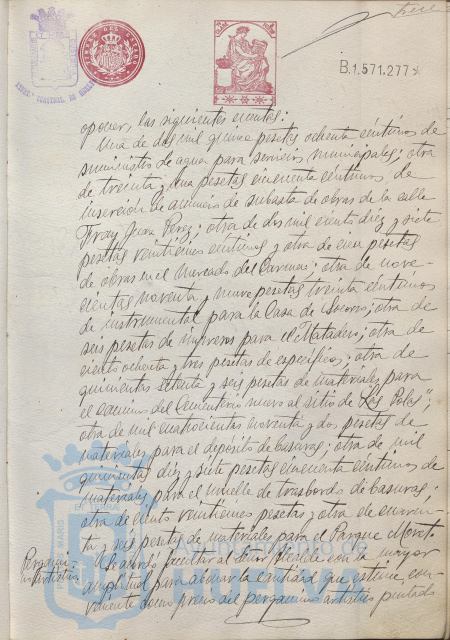 B.1.571.277
oponer, las siguientes cuentas:
Una de dos mil quince pesetas ochenta céntimos de
suministro de agua para servicios municipales; otra
de treinta y una pesetas cincuenta céntimos de
inserción de anuncio de subasta de obras de la calle
Fray Juan Perez; otra de dos mil ciento diez y siete
pesetas veinticinco céntimos y otra de cien pesetas
de obras en el Mercado del Carmen; otra de nove-
cientas noventa y nueve pesetas treinta céntimos
de instrumental para la Casa de Socorro; otra de
seis pesetas de impresos para el Matadero; otra de
ciento ochenta y tres pesetas de específicos; otra de
quinientas setenta y seis pesetas de materiales para
el camino del Cementerio nuevo al sitio de "Las Polas";
otra de mil cuatrocientas noventa y dos pesetas de
materiales para el depósito de basuras; otra de mil
quinientas diez y siete pesetas cincuenta céntimos de
materiales para el muelle de trasbordo de basuras;
otra de ciento veinticinco pesetas y otra de cuaren-
ta y seis pesetas de materiales para el Parque Moret.
Se acordó facultar al Señor Alcalde con la mayor
amplitud para abonar la cantidad que estime con-
veniente como precio del pergamino artístico pintado
Pergami-
no artístico
Ayuntamiento de
HUELVA